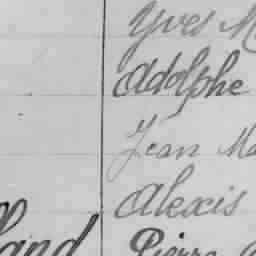 Yves M
Adolphe
Jean Ma
Alexis
land Pierre